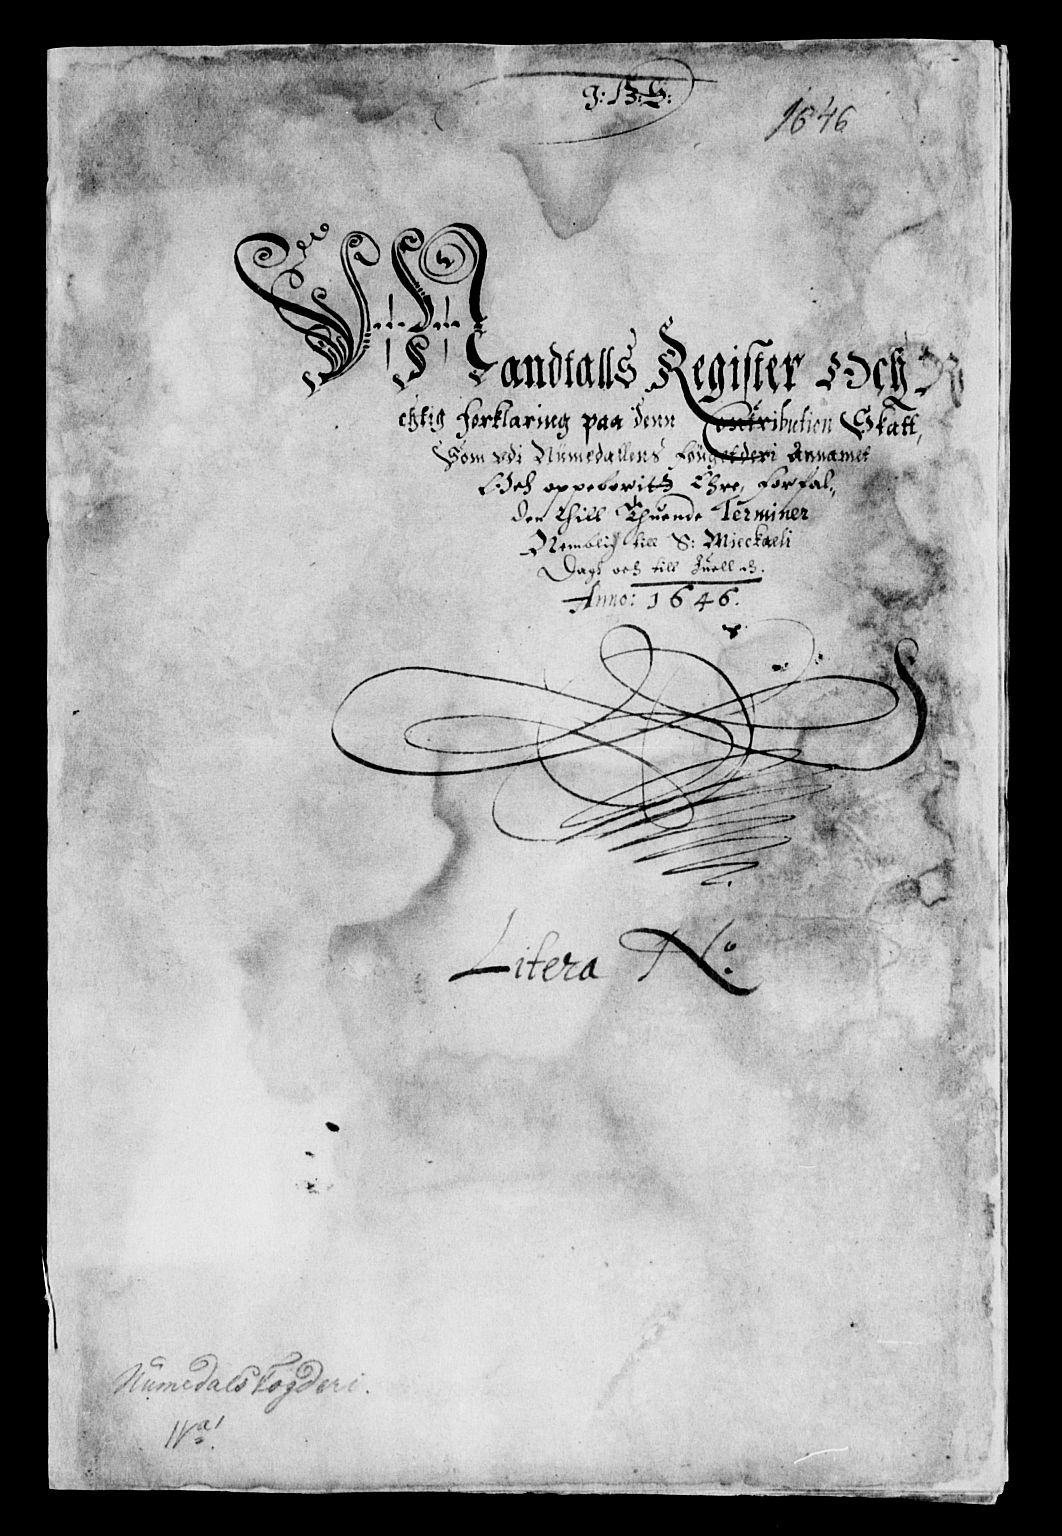 J: B: H:
1646
Mandtalls Register Och R
ichtig forklaring paa denn Contribution Skatt,
Som vdi Numedallens fougetderi Annamet
Och oppeborit Ehre, forfal„
den thill Thuende Terminer
Nemblig till S: Mickaeli
Dags och till Juell
Anno: 1646.
Litera N:o
Numedals Fogderi.